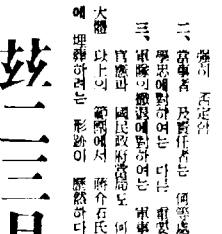 强히 否定함
二、當事者 及責任者는 何等處
學忠에對하여는 다른
三、軍隊의撤退에對하여는 軍事
官憲과 國民政府當局도 何
大體 以上의 範圍에서 蔣介石氏
에 埋葬하려는 形跡이 歷然하다
玆二三日